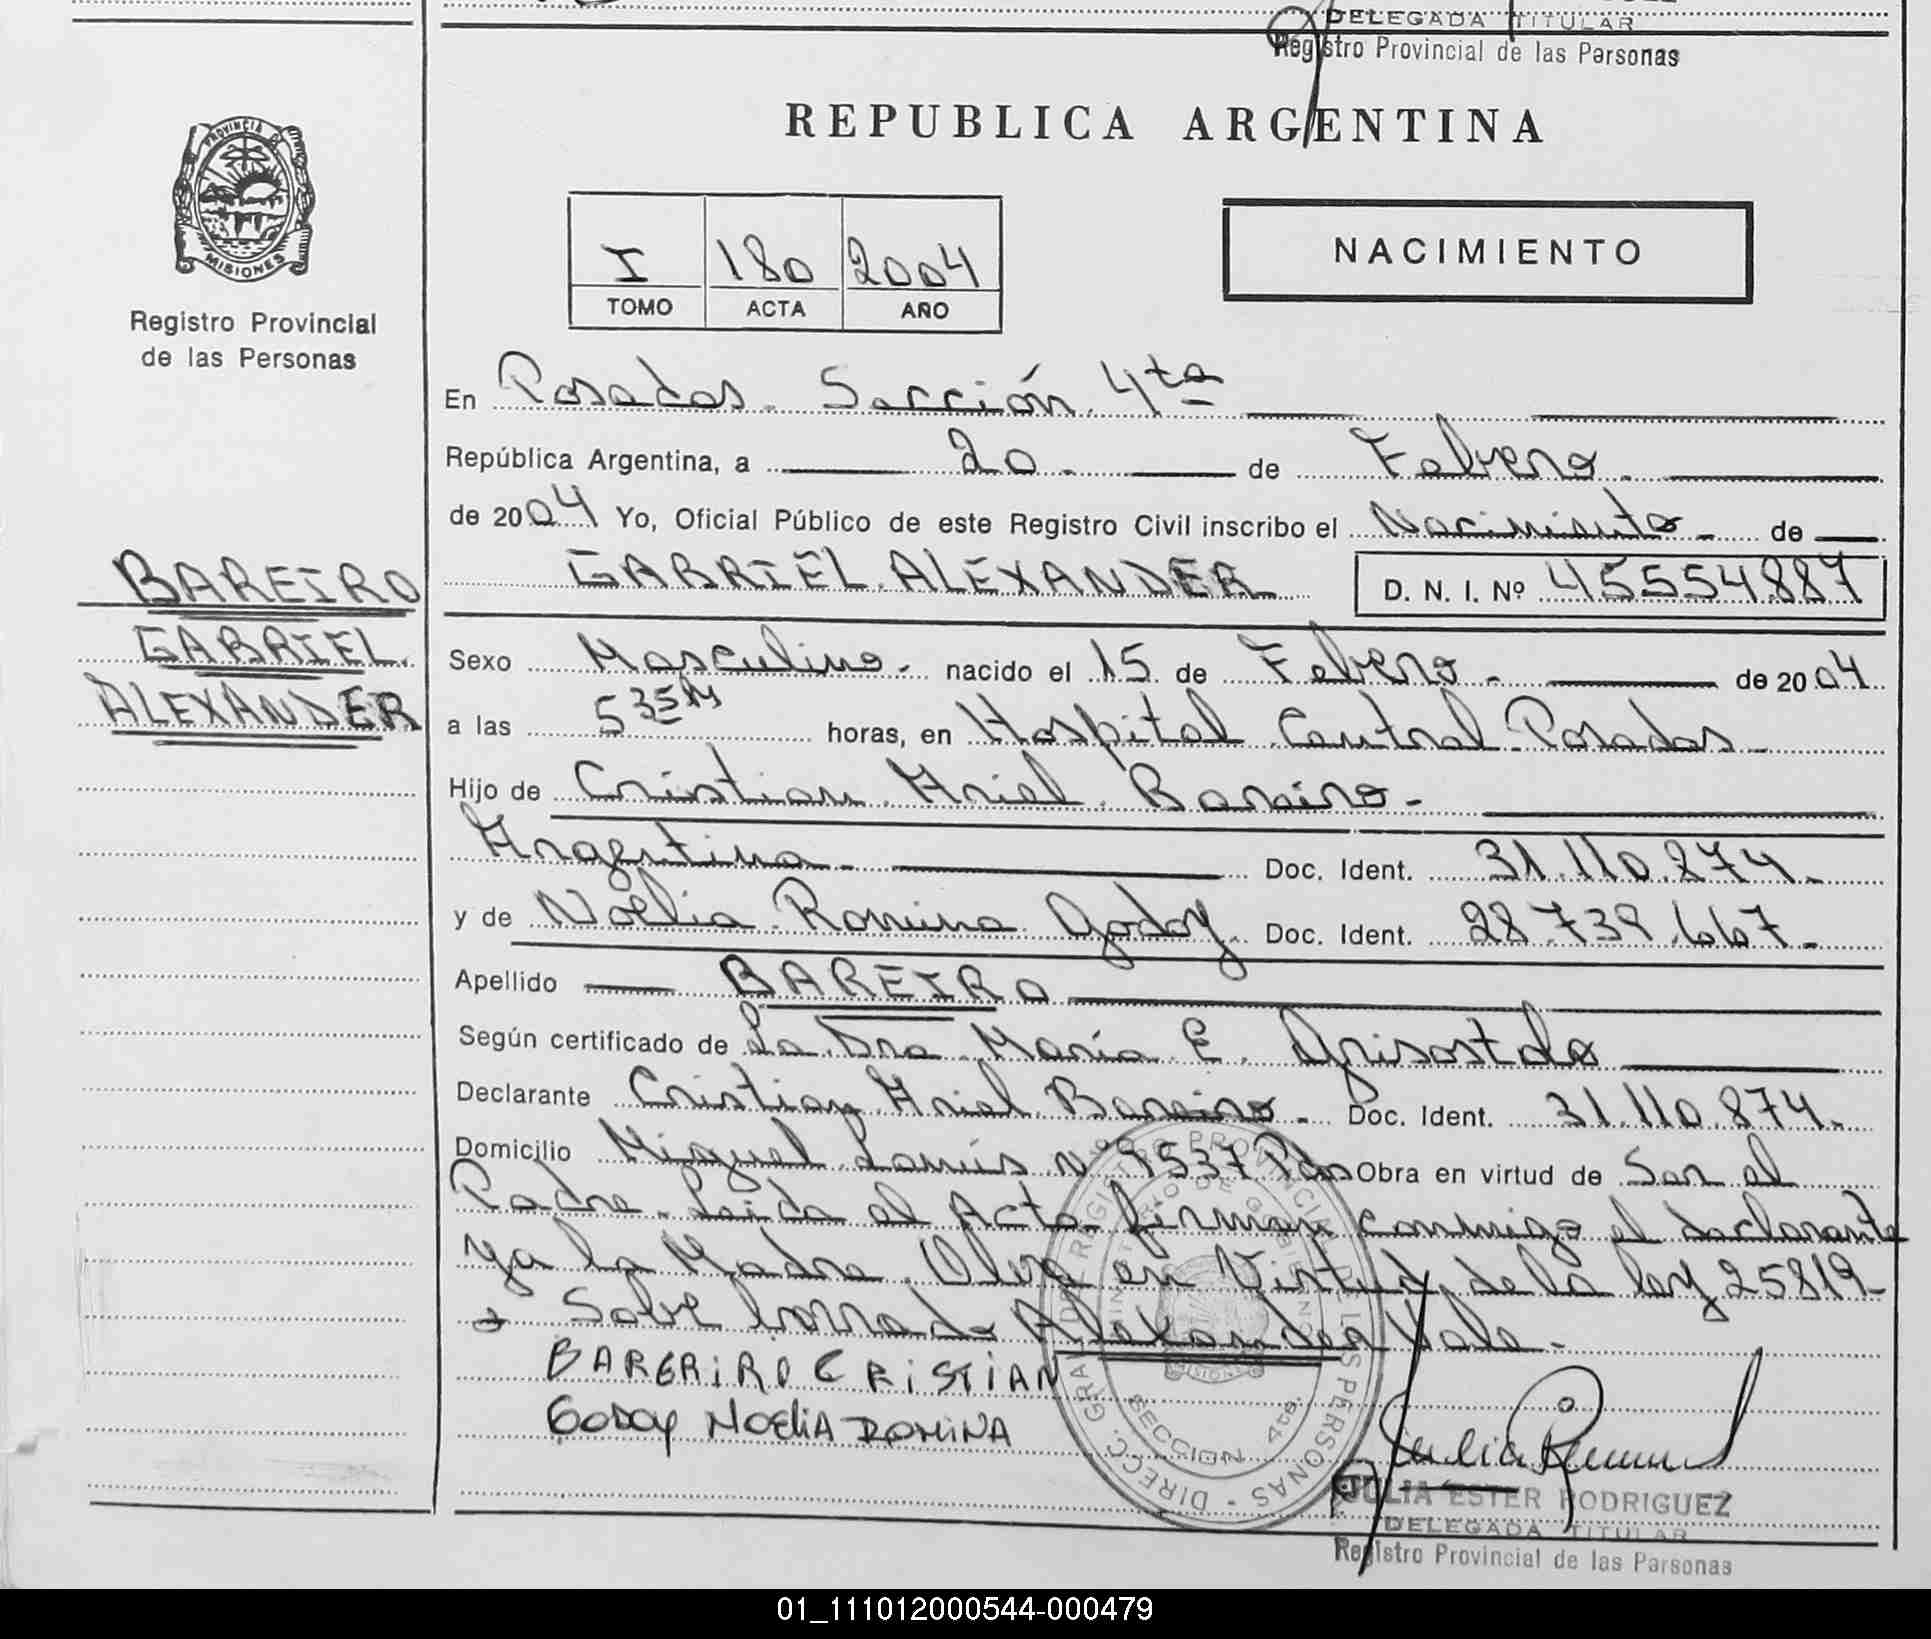 DELEGADA TITULAR
Registro Provincial de las Personas
REPUBLICA ARGENTINA
PROVINCIA DE
MISIONES
Registro Provincial
de las Personas
I 180 2004
TOMO ACTA AÑO
NACIMIENTO
En Posadas. Sección 4ta
República Argentina, a 20 de Febrero
de 2004 Yo, Oficial Público de este Registro Civil inscribo el Nacimiento de
GABRIEL ALEXANDER D. N. I. Nº 45554887
BAREIRO
GABRIEL
ALEXANDER
Sexo Masculino nacido el 15 de Febrero de 2004
a las 5 35 M horas, en Hospital Central Posadas
Hijo de Cristian Ariel Bareiro
Argentina Doc. Ident. 31.110.874
y de Noelia Romina Godoy Doc. Ident. 28.739.667
Apellido BAREIRO
Según certificado de La Dra María E.
Declarante Cristian Ariel Bareiro Doc. Ident. 31.110.874
Domicilio Miguel Lanús Nº 9537 Pdas Obra en virtud de Ser el
Padre. Leida el Acta firman conmigo el declarante
y a la Madre. Obra en Virtud de la ley 25819
Sobre borrado Alexander Vale.
BARERIRO CRISTIAN
GODOY NOELIA ROMINA
DIRECC. GRAL. DEL REGISTRO PROVINCIAL DE LAS PERSONAS
MINISTERIO DE GOBIERNO
MISIONES
SECCION 4ta.
JULIA ESTER RODRIGUEZ
DELEGADA TITULAR
Registro Provincial de las Personas
01_111012000544-000479